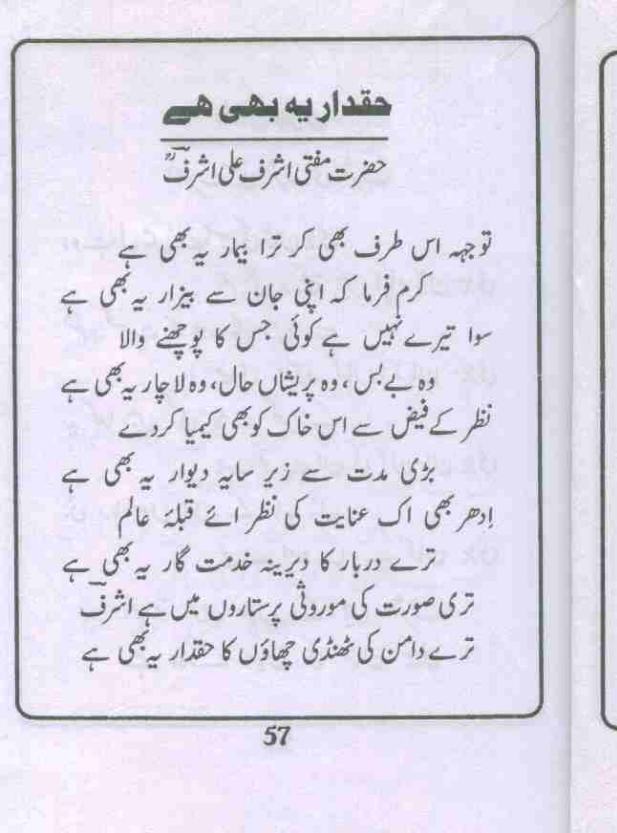 حقدار یہ بھی ہے
حضرت مفتی اشرف علی اشرفؒ
توجہہ اس طرف بھی کر ترا بیمار یہ بھی ہے
کرم فرما کہ اپنی جان سے بیزار یہ بھی ہے
سوا تیرے نہیں ہے کوئی جس کا پوچھنے والا
وہ بے بس، وہ پریشاں حال، وہ لاچار یہ بھی ہے
نظر کے فیض سے اس خاک کو بھی کیمیا کردے
بڑی مدت سے زیر سایہ دیوار یہ بھی ہے
اِدھر بھی اک عنایت کی نظر ائے قبلۂ عالم
ترے دربار کا دیرینہ خدمت گار یہ بھی ہے
تری صورت کی موروثی پرستاروں میں ہے اشرفؔ
ترے دامن کی ٹھنڈی چھاؤں کا حقدار یہ بھی ہے
57